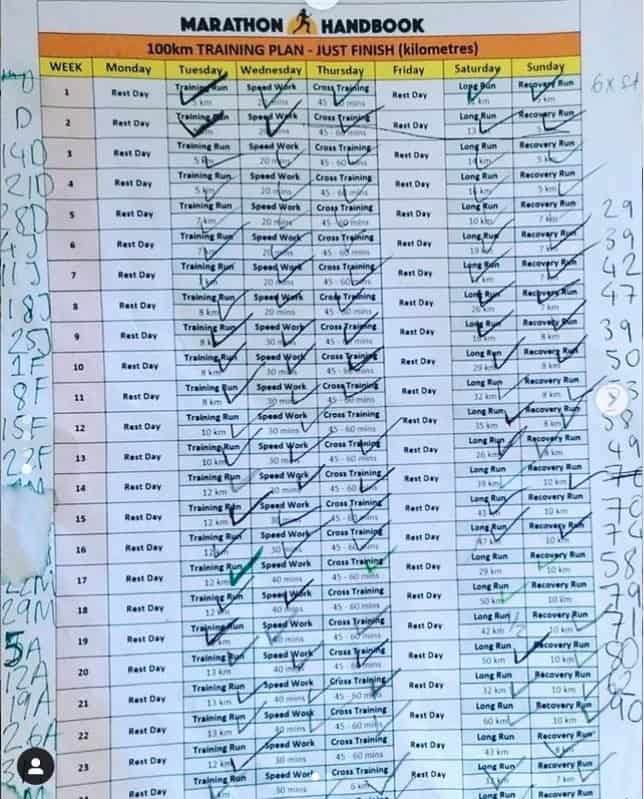 MARATHON HANDBOOK
100km TRAINING PLAN - JUST FINISH (kilometres)
WEEK Monday Tuesday Wednesday Thursday Friday Saturday Sunday
D 1 Rest Day Training Run km Speed Work mins Cross Training 45 mins Rest Day Long Run km Recovery Run km
D 2 Rest Day Training Run Speed Work Cross Training 45 - 60 mins Rest Day Long Run 13 Recovery Run 5
14D 3 Rest Day Training Run 5 km Speed Work 20 mins Cross Training 45 - 60 mins Rest Day Long Run km Recovery Run 5 km
21D 4 Rest Day Training Run 5 km Speed Work 20 mins Cross Training 45 - 60 mins Rest Day Long Run km Recovery Run 5 km
28D 5 Rest Day Training Run 7 km Speed Work 20 mins Cross Training 45 - 60 mins Rest Day Long Run 10 km Recovery Run 7 km 29
4J 6 Rest Day Training Run 7 Speed Work 20 mins Cross Training 45 - 60 mins Rest Day Long Run 19 Recovery Run 7 39
11J 7 Rest Day Training Run km Speed Work 20 mins Cross Training 45 - 60 mins Rest Day Long Run km Recovery Run 7 42
18J 8 Rest Day Training Run 8 km Speed Work 20 mins Cross Training 45 - 60 mins Rest Day Long Run 26 km Recovery Run 7 km 47
25J 9 Rest Day Training Run 8 Speed Work 30 mins Cross Training 45 - 60 mins Rest Day Long Run km Recovery Run 8 km 39
1F 10 Rest Day Training Run 8 km Speed Work 30 mins Cross Training 45 - 60 mins Rest Day Long Run 29 km Recovery Run 8 km 50
8F 11 Rest Day Training Run 8 km Speed Work 30 mins Cross Training 45 - 60 mins Rest Day Long Run 32 km Recovery Run 8 km
15F 12 Rest Day Training Run 10 km Speed Work 30 mins Cross Training 45 - 60 mins Rest Day Long Run 35 km Recovery Run 8 km 58
22F 13 Rest Day Training Run 10 km Speed Work 30 mins Cross Training 45 - 60 mins Rest Day Long Run 26 km Recovery Run 8 km 49
14 Rest Day Training Run 12 km Speed Work mins Cross Training 45 - 60 Rest Day Long Run 39 km Recovery Run 10 km
15 Rest Day Training Run 12 km Speed Work 30 Cross Training 45 - 60 mins Rest Day Long Run 43 Recovery Run 10 km 70
16 Rest Day Training Run 12 Speed Work 30 Cross Training 45 - 60 mins Rest Day Long Run 47 km Recovery Run 10 km 74
22M 17 Rest Day Training Run 12 km Speed Work 40 mins Cross Training 45 - 60 mins Rest Day Long Run 29 km Recovery Run 10 km 58
29M 18 Rest Day Training Run 12 km Speed Work 40 mins Cross Training 45 - 60 mins Rest Day Long Run 50 km Recovery Run 10 km 79
5A 19 Rest Day Training Run km Speed Work 40 mins Cross Training 45 - 60 mins Rest Day Long Run 42 km Recovery Run 10 km 71
12A 20 Rest Day Training Run 13 km Speed Work 40 mins Cross Training 45 - 60 mins Rest Day Long Run 50 km Recovery Run 10 km 80
19A 21 Rest Day Training Run 13 km Speed Work 40 mins Cross Training 45 - 60 mins Rest Day Long Run 32 km Recovery Run 10 km 62
26A 22 Rest Day Training Run 13 km Speed Work 40 mins Cross Training 45 - 60 mins Rest Day Long Run 60 km Recovery Run 10 km 90
23 Rest Day Training Run 12 km Speed Work 30 mins Cross Training 45 - 60 mins Rest Day Long Run 43 km Recovery Run km
Rest Day Training Run km Speed Work 30 mins Cross Training 6 km Rest Day Long Run km Recovery Run 7 km
Long Run Recovery Run